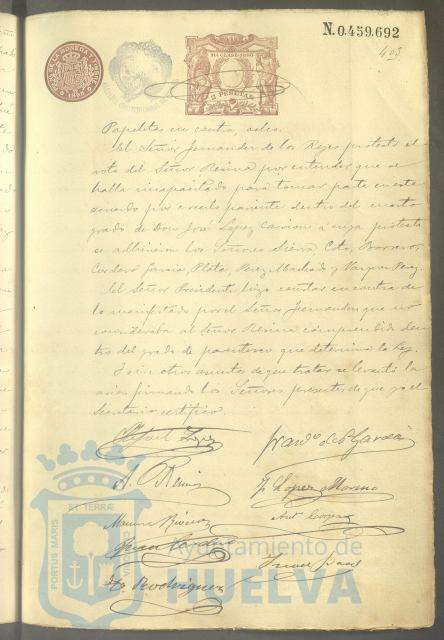 N. 0.459.692
403
2 PESETAS
Papeletas en contra, ocho.
El Señor Fernandez de los Reyes protesta el
voto del Señor Resina por entender que se
halla incapacitado para tomar parte en este
acuerdo por creerlo pariente dentro del cuarto
grado de Don José Lopez á cuya protesta
se adhirieron los Señores Sierra, Coto, Borrero,
Cordero, Garcia, Plata, Perez Machado y Vazquez Perez.
El Señor Presidente hizo constar en contra de
lo manifestado por el Señor Fernandez que no
consideraba al Señor Resina comprendido den-
tro del grado de parentesco que determina la Ley.
Y sin otros asuntos de que tratar se levantó la
sesion firmando los Señores presentes, de que yo el
Secretario certifico.
Rafael Lopez
Garcia
A. Resina
J. Lopez Moreno
Manuel
Juan Cordero
Juan
E. Rodriguez
PORTUS MARIS ET TERRÆ
Ayuntamiento de
HUELVA